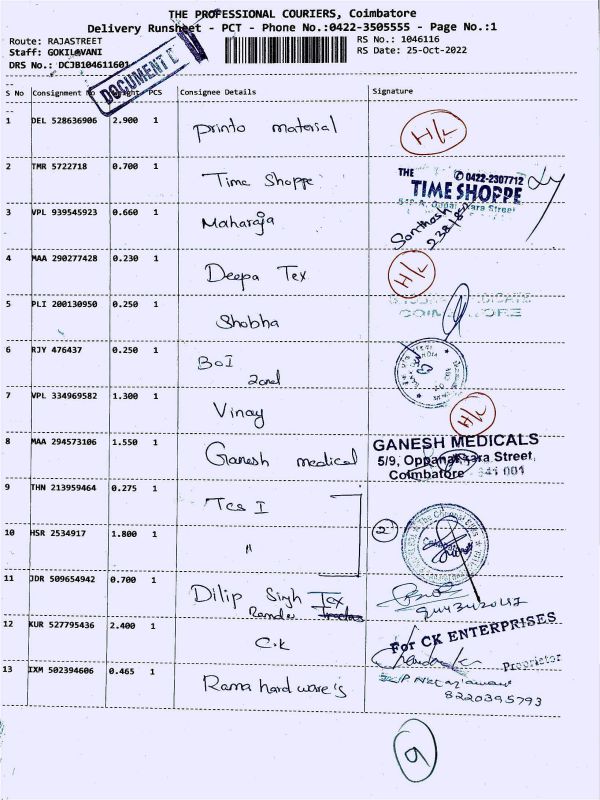 THE PROFESSIONAL COURIERS, Coimbatore
Delivery Runsheet - PCT - Phone No.:0422-3505555 - Page No.:1
Route: RAJASTREET
RS No.: 1046116
Staff: GOKILAVANI
RS Date: 25-Oct-2022
DRS No.: DCJB104611601
DOCUMENT
S No Consignment No PCS Consignee Details Signature
1 DEL 528636906 2.900 1 Printo material H/L
2 TMR 5722718 0.700 1 Time Shoppe
THE 0422-2307712
TIME SHOPPE
3 VPL 939545923 0.660 1 Maharaja Santhosh
4 MAA 290277428 0.230 1 Deepa Tex H/L
5 PLI 200130950 0.250 1 Shobha
6 RJY 476437 0.250 1 BOI
2and
7 VPL 334969582 1.300 1 Vinay H/L
8 MAA 294573106 1.550 1 Ganesh medical
GANESH MEDICALS
5/9, Oppanakkara Street,
Coimbatore - 641 001
9 THN 213959464 0.275 1 Tcs I
10 HSR 2534917 1.800 1 " 2
11 JDR 509654942 0.700 1 Dilip Singh Tex
12 KUR 527795436 2.400 1 C.K
For CK ENTERPRISES
Proprietor
13 IXM 502394606 0.465 1 Rama hard ware's
8220395793
9